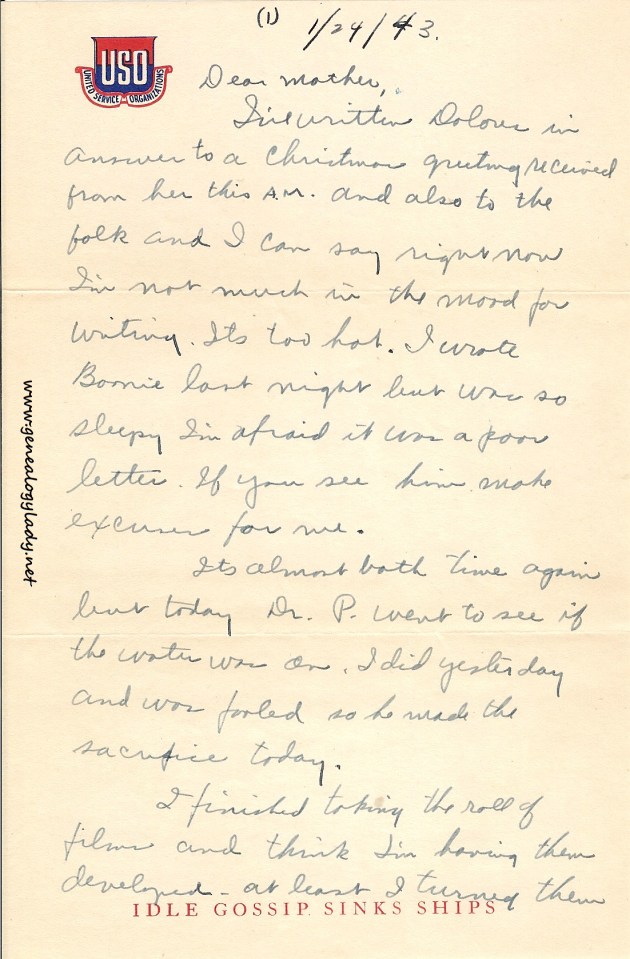 (1)
1/24/43.
USO
UNITED SERVICE ORGANIZATIONS
Dear mother,
I've written Dolores in
answer to a Christmas greeting received
from her this A.M. and also to the
folk and I can say right now
I'm not much in the mood for
writing. Its too hot. I wrote
Bomie last night but was so
sleepy I'm afraid it was a poor
letter. If you see him make
excuses for me.
Its almost bath time again
but today Dr. P. went to see if
the water was on. I did yesterday
and was fooled so he made the
sacrifice today.
I finished taking the roll of
films and think I'm having them
developed - at least I turned them
IDLE GOSSIP SINKS SHIPS
www.genealogylady.net